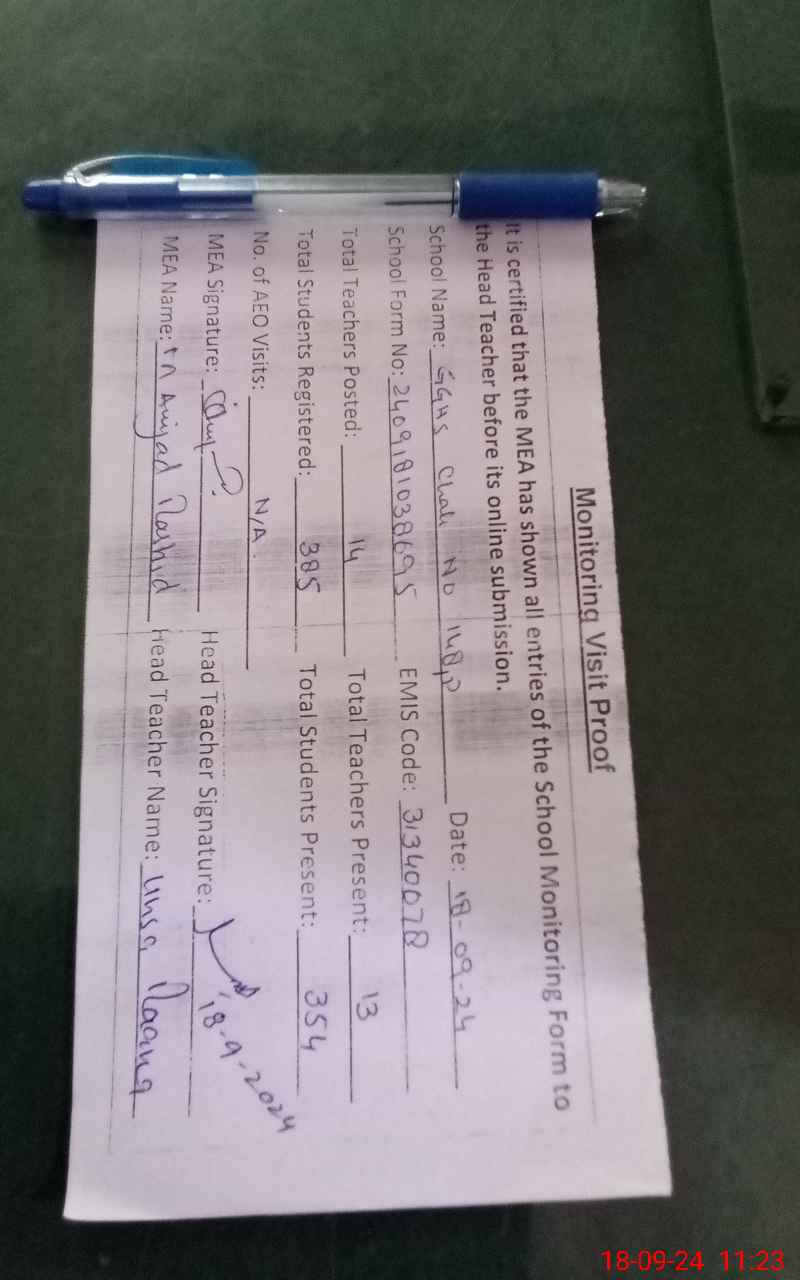 Monitoring Visit Proof
It is certified that the MEA has shown all entries of the School Monitoring Form to
the Head Teacher before its online submission.
School Name: GGHS Chak No 148,P Date: 18-09-24
School Form No: 2409181038695 EMIS Code: 31340078
Total Teachers Posted: 14 Total Teachers Present: 13
Total Students Registered: 385 Total Students Present: 354
No. of AEO Visits: N/A.
MEA Signature: Head Teacher Signature: 18-9-2024
MEA Name: M Amjad Rashid Head Teacher Name: Unsa
18-09-24 11:23